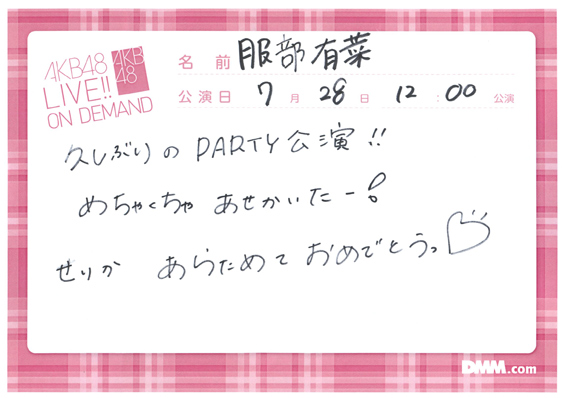 AKB48
LIVE!!
ON DEMAND
AKB
48
名前 服部有菜
公演日 7月28日 12:00公演
久しぶりの PARTY公演!!
めちゃくちゃ あせかいたー!
せりか あらためて おめでとうっ♡
DMM.com